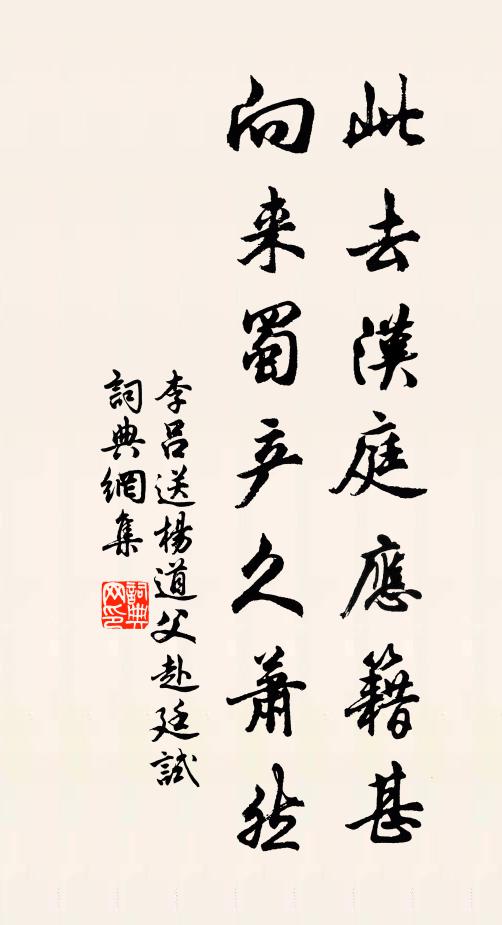 此去漢庭應籍甚
向来蜀产久蕭然
李呂送楊道父赴廷試
詞典網集
詞典网印